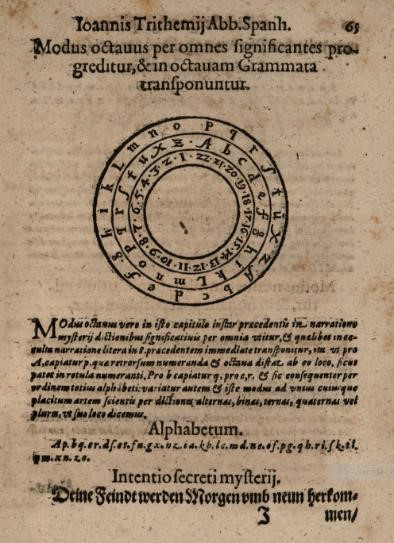 Ioannis Trithemij Abb. Spanh. 65
Modus octauus per omnes significantes pro-
greditur, & in octauam Grammata
transponuntur.
MOdus octauus vero in isto capitulo instar præcedentis in narratione
mysterij dictionibus significatiuis per omnia vtitur, & quælibet in ea
narratione litera in 8. præcedentem immediate transponitur, vt pro
A, capiatur p. quæ retrorsum numeranda & octaua distat ab eo loco, sicut
patet in rotula numeranti, Pro b capiatur q. pro c, r. & sic consequenter per
ordinem totius alphabeti: variatur autem & iste modus ad vnius cuiusque
placitum artem scientis per dictiones alternas, binas, ternas, quaternas vel
plures, vt suo loco dicemus.
Alphabetum.
Ap. bq. er. ds. et. fu. gx. hz. ia. kb. lc. md. ne. of. pg. qh. ri. sk. tl.
vm. xn. zo.
Intentio secreti mysterij.
Deine Feindt werden Morgen vmb neun herkom-
I men/